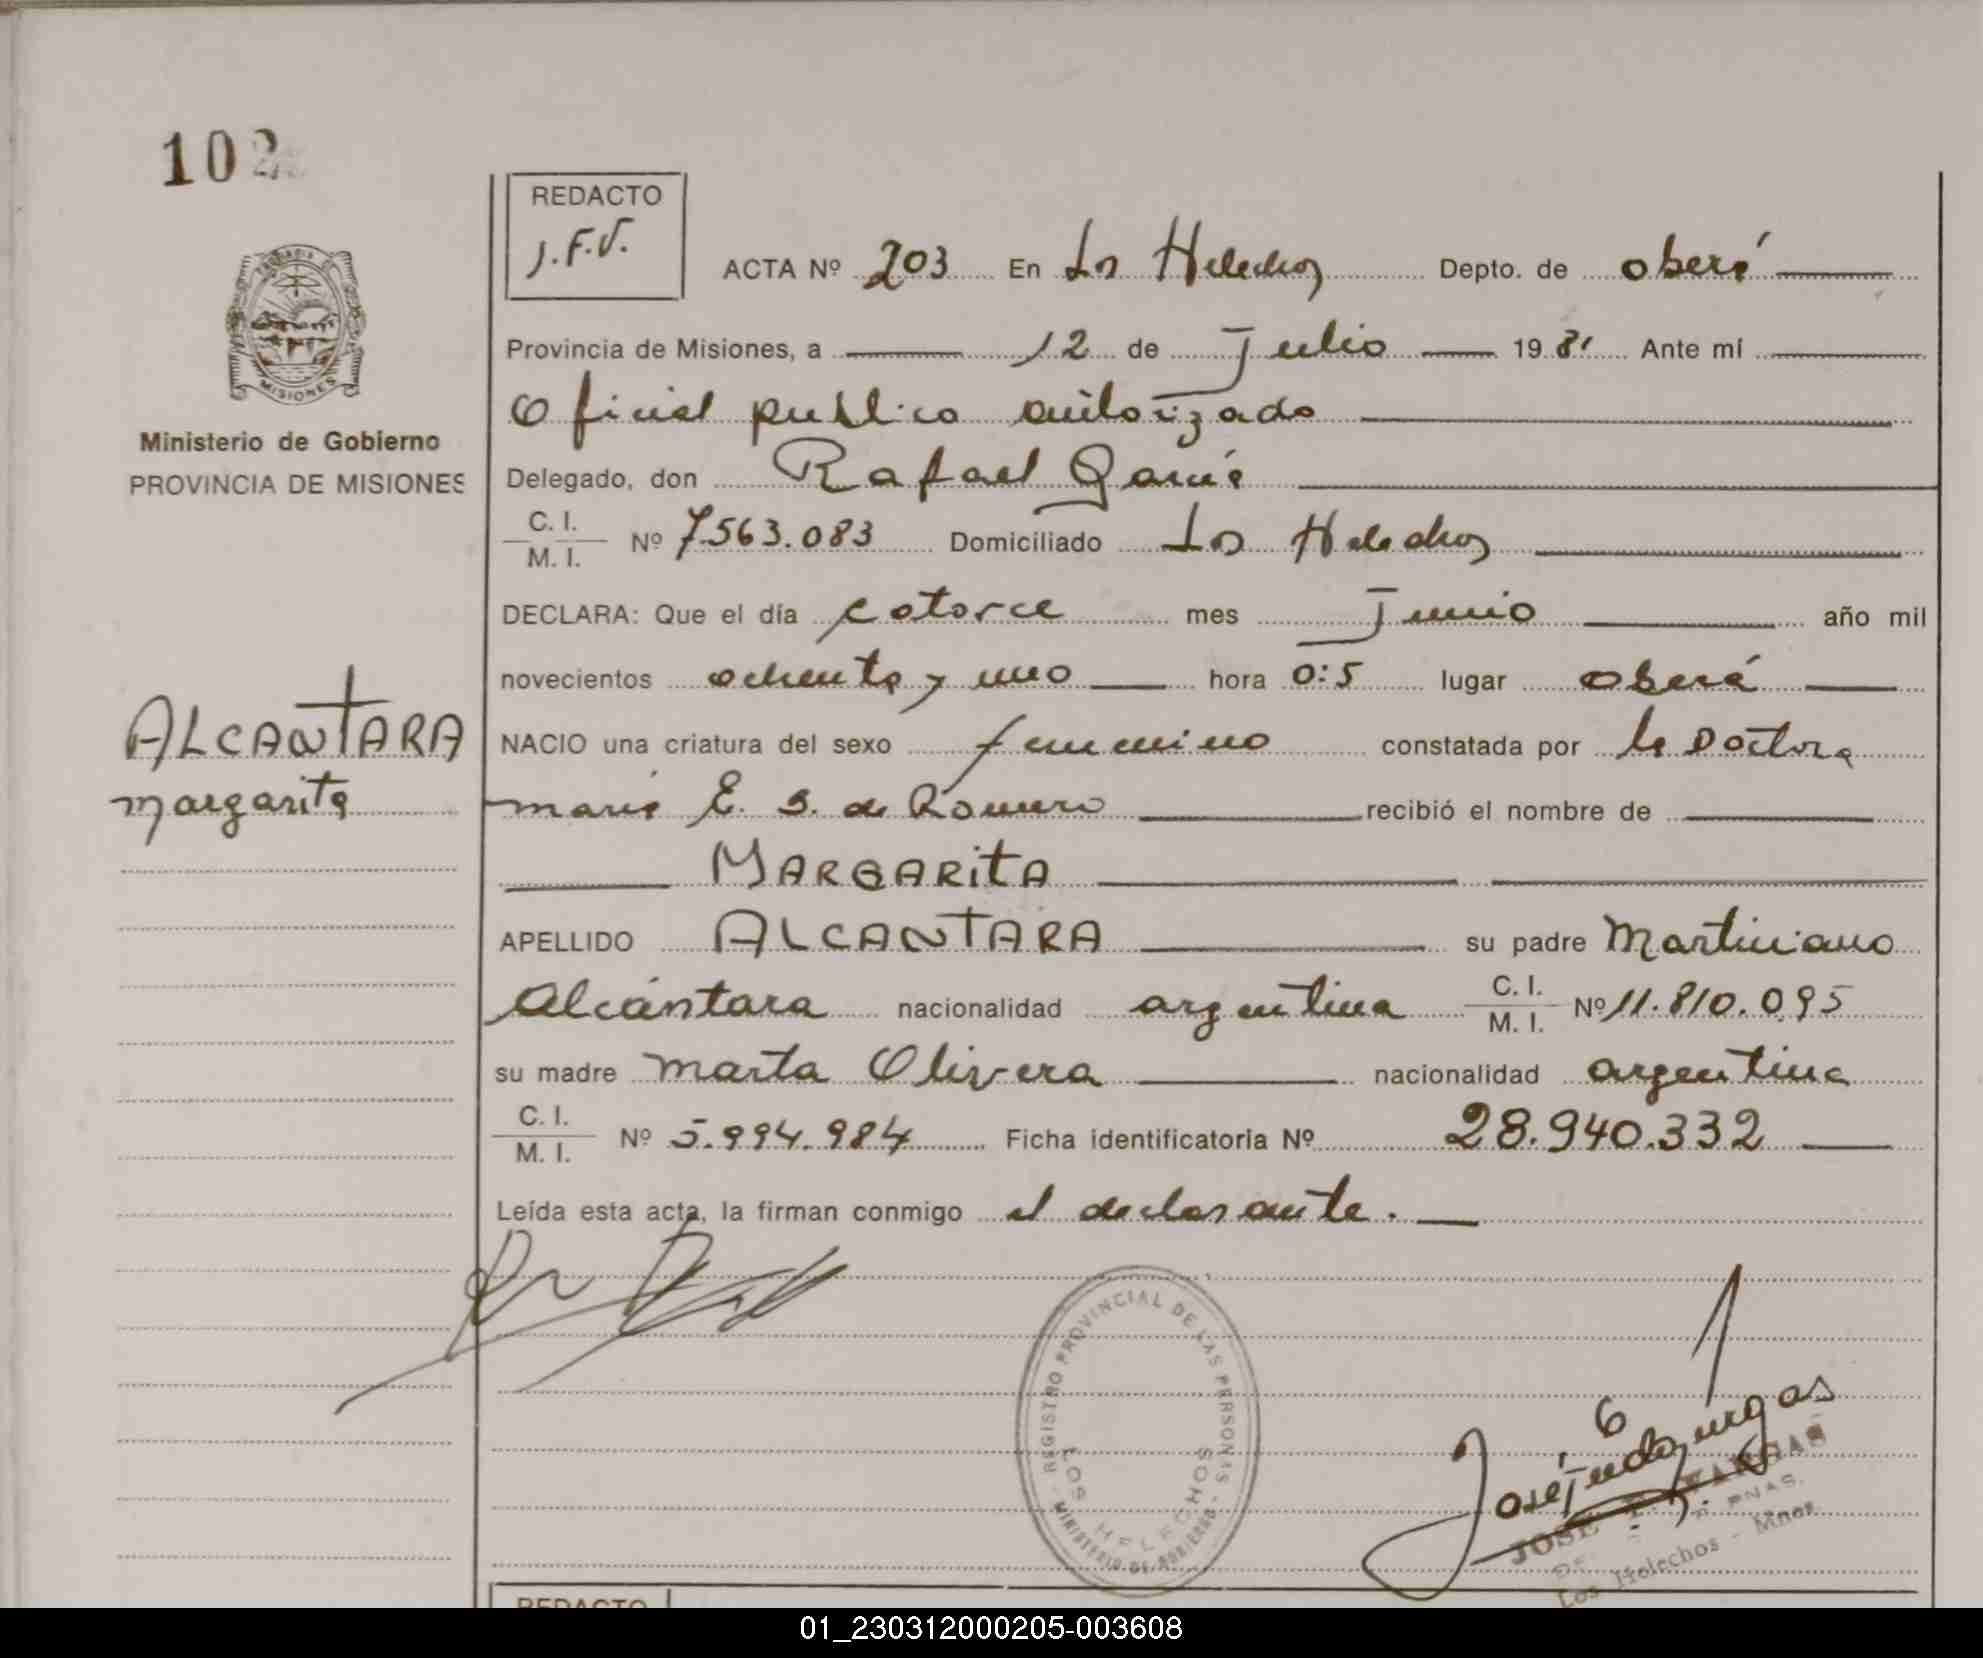 102
REDACTO
J.F.V.
ACTA Nº 203 En Los Helechos Depto. de Oberá
MISIONES
Provincia de Misiones, a 12 de Julio 1981 Ante mí
Oficial publico autorizado
Ministerio de Gobierno
PROVINCIA DE MISIONES
Delegado, don Rafael
C. I.
M. I. Nº 7.563.083 Domiciliado Los Helechos
DECLARA: Que el día catorce mes Junio año mil
novecientos ochenta y uno hora 0:5 lugar Oberá
ALCANTARA
Margarita
NACIO una criatura del sexo femenino constatada por la Doctora
Maria E. S. de Romero recibió el nombre de
MARGARITA
APELLIDO ALCANTARA su padre Martiniano
Alcántara nacionalidad argentina C. I.
M. I. Nº 11.810.095
su madre Marta Olivera nacionalidad argentina
C. I.
M. I. Nº 5.994.984 Ficha identificatoria Nº 28.940.332
Leída esta acta, la firman conmigo el declarante.
REGISTRO PROVINCIAL DE LAS PERSONAS - MINISTERIO DE GOBIERNO -
LOS HELECHOS
JOSE F. VARGAS
Los Helechos - Mnes.
REDACTO
01_230312000205-003608